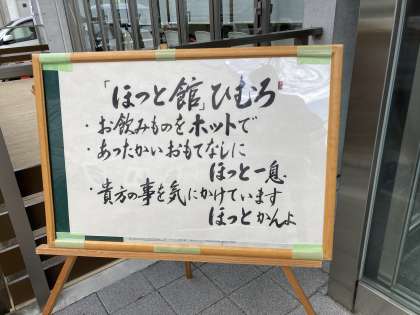 「ほっと館」ひむろ
・お飲みものをホットで
・あったかいおもてなしに
ほっと一息
・貴方の事を気にかけています
ほっとかんよ